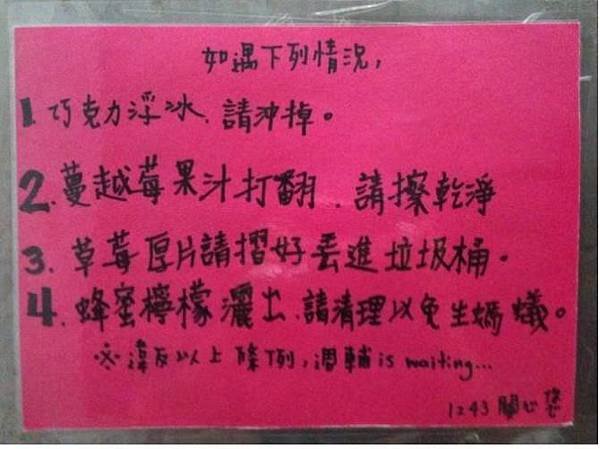 如遇下列情況,
1. 巧克力浮冰、請沖掉。
2. 蔓越莓果汁打翻、請擦乾淨
3. 草莓厚片請摺好丟進垃圾桶。
4. 蜂蜜檸檬灑出、請清理以免生螞蟻。
※違反以上條例,週輔is waiting...
1243 關心您